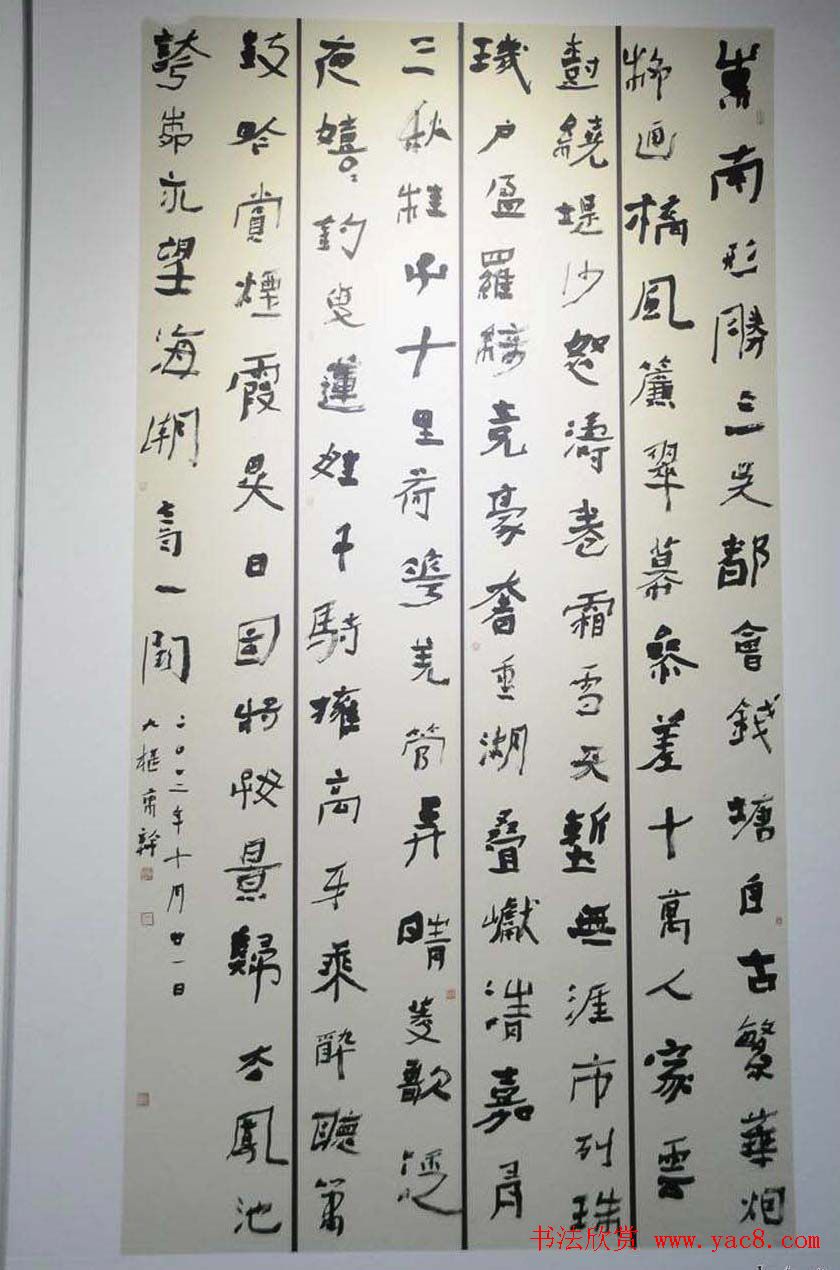 東南形勝三吳都會錢塘自古繁華烟
柳画橋風簾翠幕參差十萬人家雲
樹繞堤沙怒濤卷霜雪天塹無涯市列珠
璣戶盈羅綺竞豪奢重湖疊巘清嘉有
三秋桂子十里荷花羌管弄晴菱歌泛
夜嬉嬉釣叟蓮娃千騎擁高牙乘醉聽簫
鼓吟賞煙霞異日圖將好景歸去鳳池
誇 望海潮 一闋
二〇〇二年十月廿一日
书法欣赏 www.yac8.com